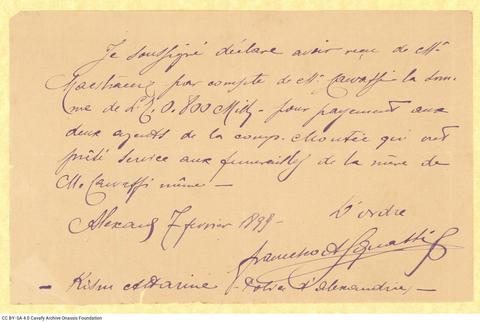 Je soussigné déclare avoir reçu de Mr
par compte de Mr Cavaffi la som-
me de L.E. 0.800 Mill. pour payement aux
deux agents de la comp. Montée qui ont
prêté service aux funerailles de la mère de
Mr Cavaffi même —
Alexand. 7 fevrier 1899 — D'ordre
Francesco
— Kism Attarine — Police d'Alexandrie —
CC BY-SA 4.0 Cavafy Archive Onassis Foundation